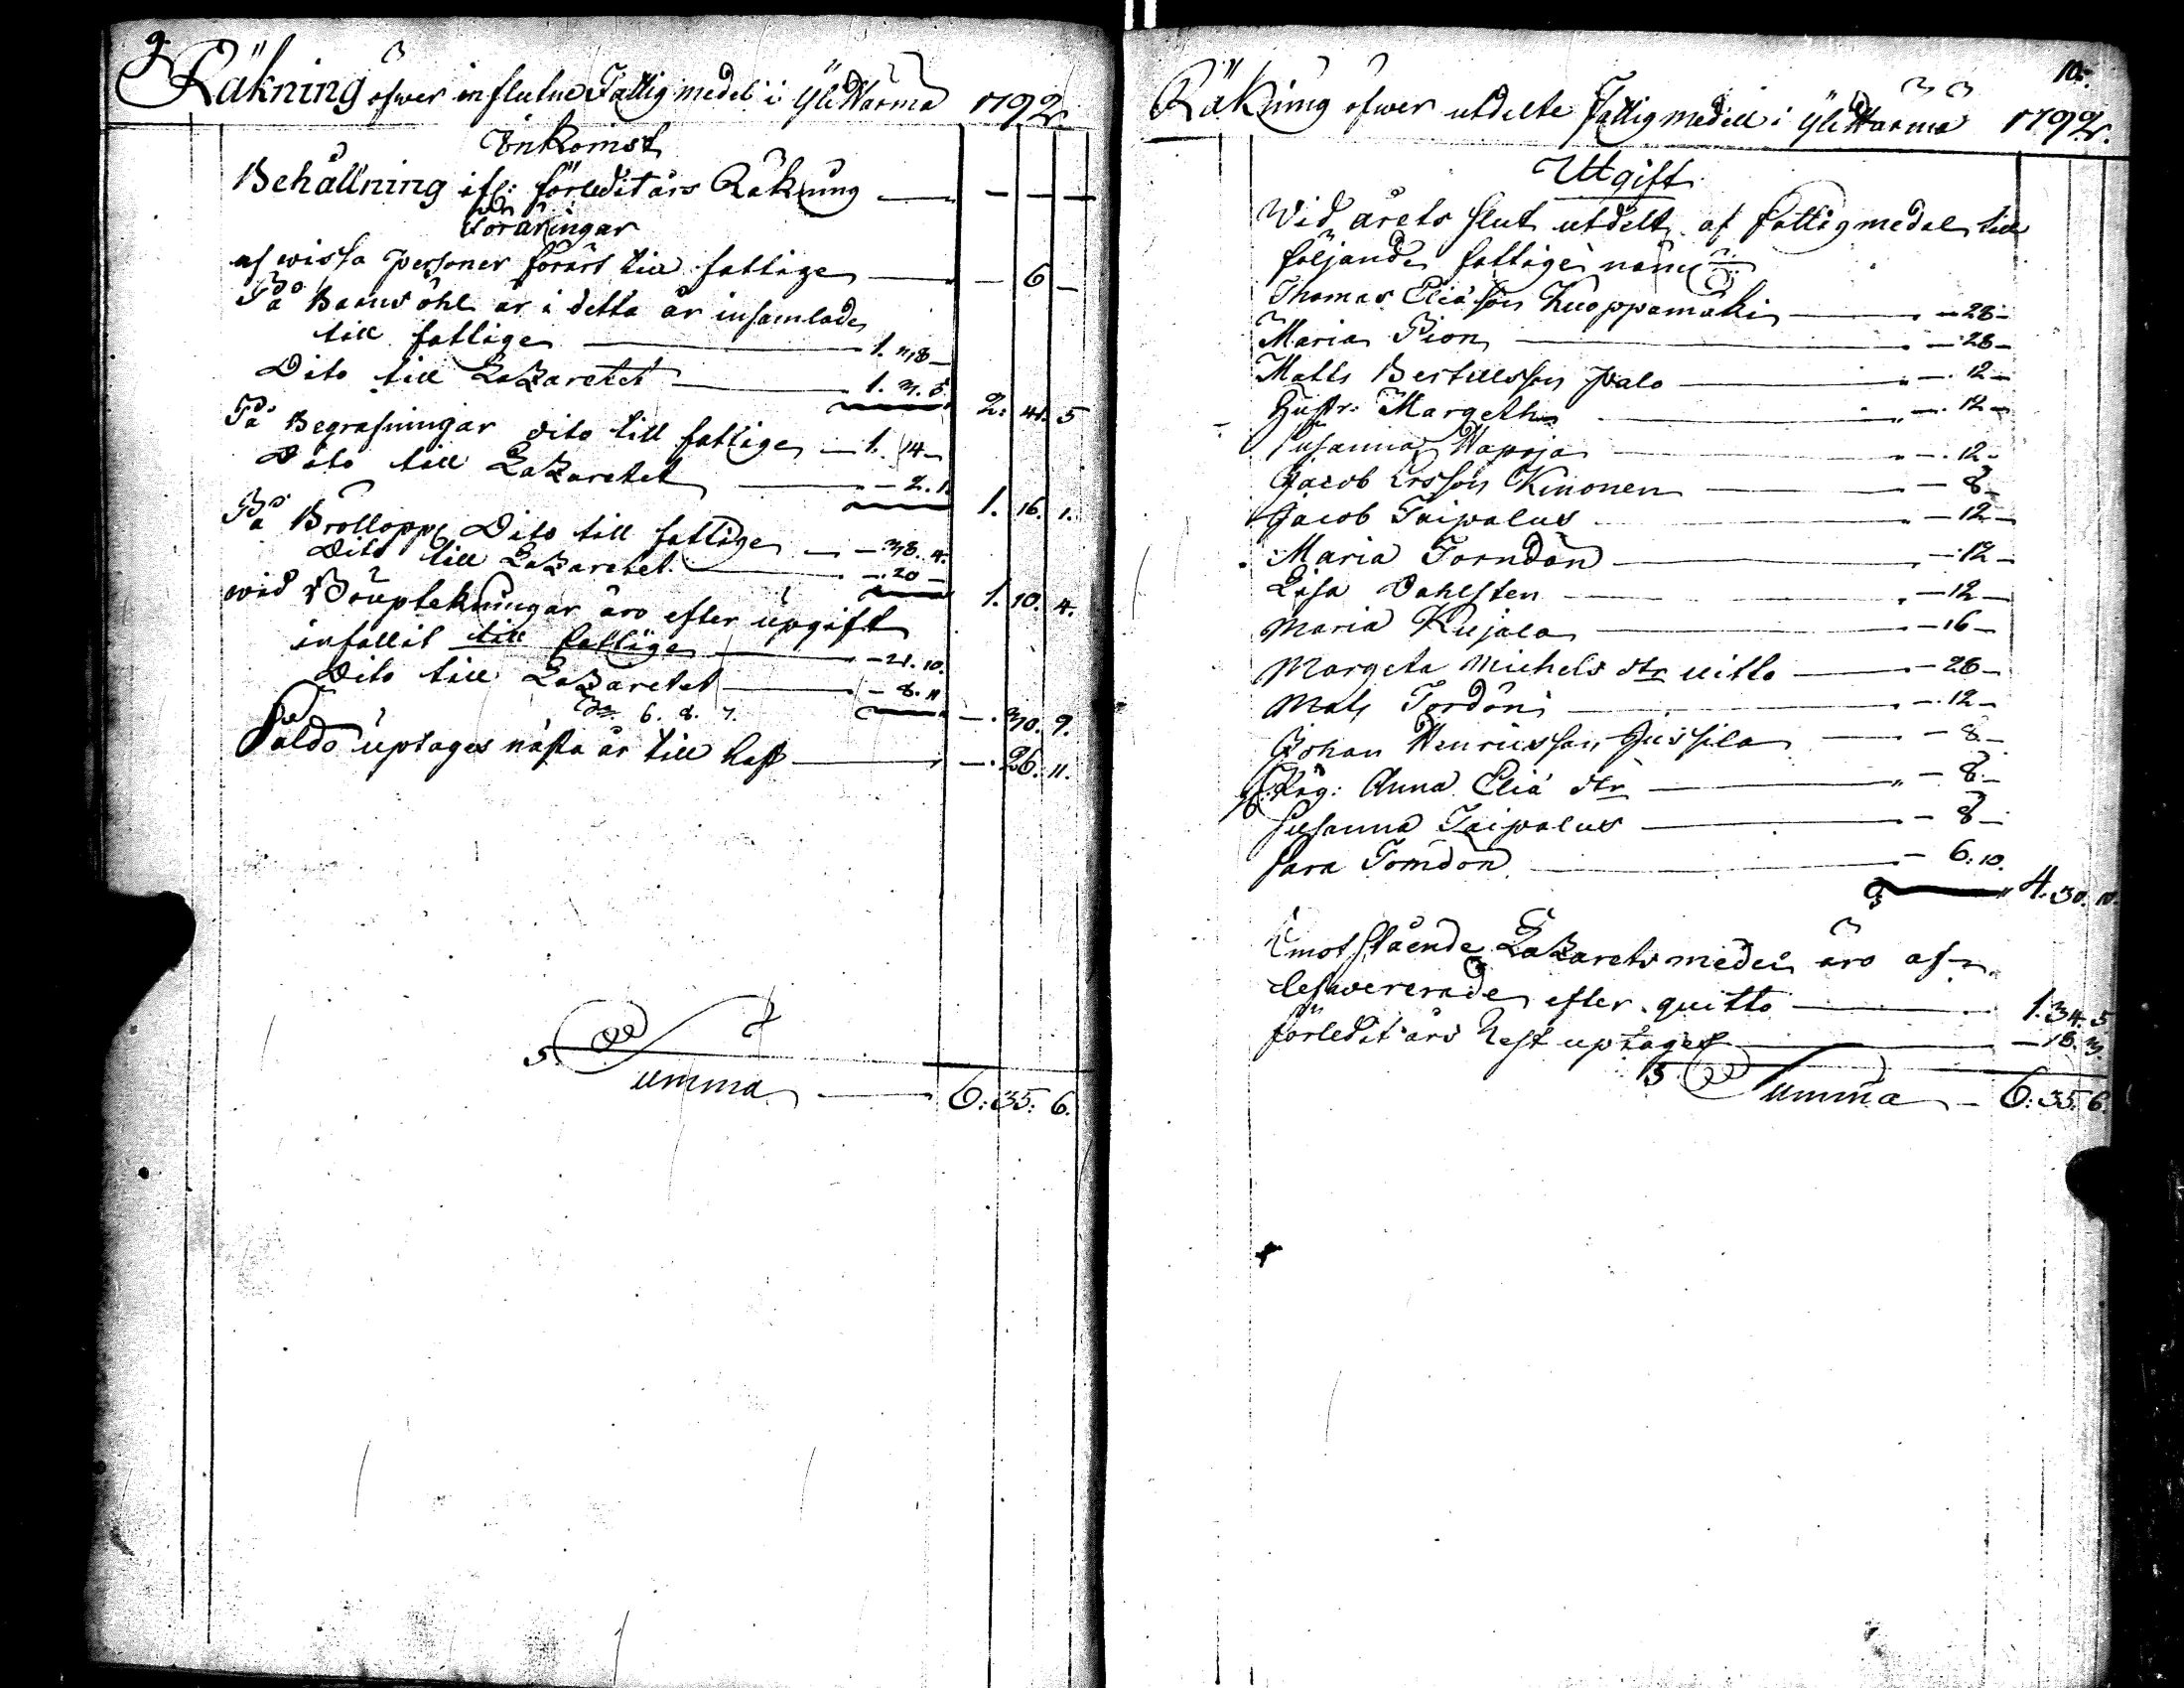 9
Räkning öfwer influtne Fattig medel i Ylihärmä 1792.
Inkomst
Behållning ifr: förledit års Räkning — — — —
Föräringar
af wissa personer förärt till fattige — — 6 —
På Barnsöhl är i detta år insamlade
till fattige — 1. 38 —
Dito till Lazaretet — 1. 3. 5.
2: 41. 5
På Begrafningar dito till fattige — 1. 14 —
Dito till Lazaretet — — 2. 1.
1. 16. 1.
På Brölloppe Dito till fattige — — 38. 4.
Dito till Lazaretet — — 20 —
1. 10. 4.
wid Bouptekningar äro efter upgift
infallit till fattige — — 21. 10.
Dito till Lazaretet — — 8. 11
6. 8. 7.
— . 30. 9.
Saldo uptages nästa år till Rest — — . 26. 11.
5. Summa — 6: 35: 6.
10.
Räkning öfwer utdelte Fattig medell i Ylihärmä 1792.
Utgift
Wid årets slut utdelt af fattigmedel till
följande fattige näml:
Thomas Eliæson Kuoppamäki — — 28 —
Maria Pion — — 28 —
Matts Bertillsson Palo — — 12 —
Hustr: Margetha — — 12 —
Susanna Harja — — 12 —
Jacob Ersson Kinonen — — 8 —
Jacob Taipalus — — 12 —
Maria Torndon — — 12 —
Lisa Dahlsten — — 12 —
Maria Kujala — — 16 —
Margeta Michels dtr Uitto — — 26 —
Mats Tordön — — 12 —
Johan Henricsson Jussila — — 8 —
Pig: Anna Eliæ dtr — — 8 —
Susanna Taipalus — — 8 —
Sara Torndon — — 6. 10.
4. 30. 10.
Emotstående Lazarets medel äro af-
lefwererade efter quitto — 1. 34. 5
förledit års Rest uptages — — 18. 3.
Summa — 6: 35. 6.